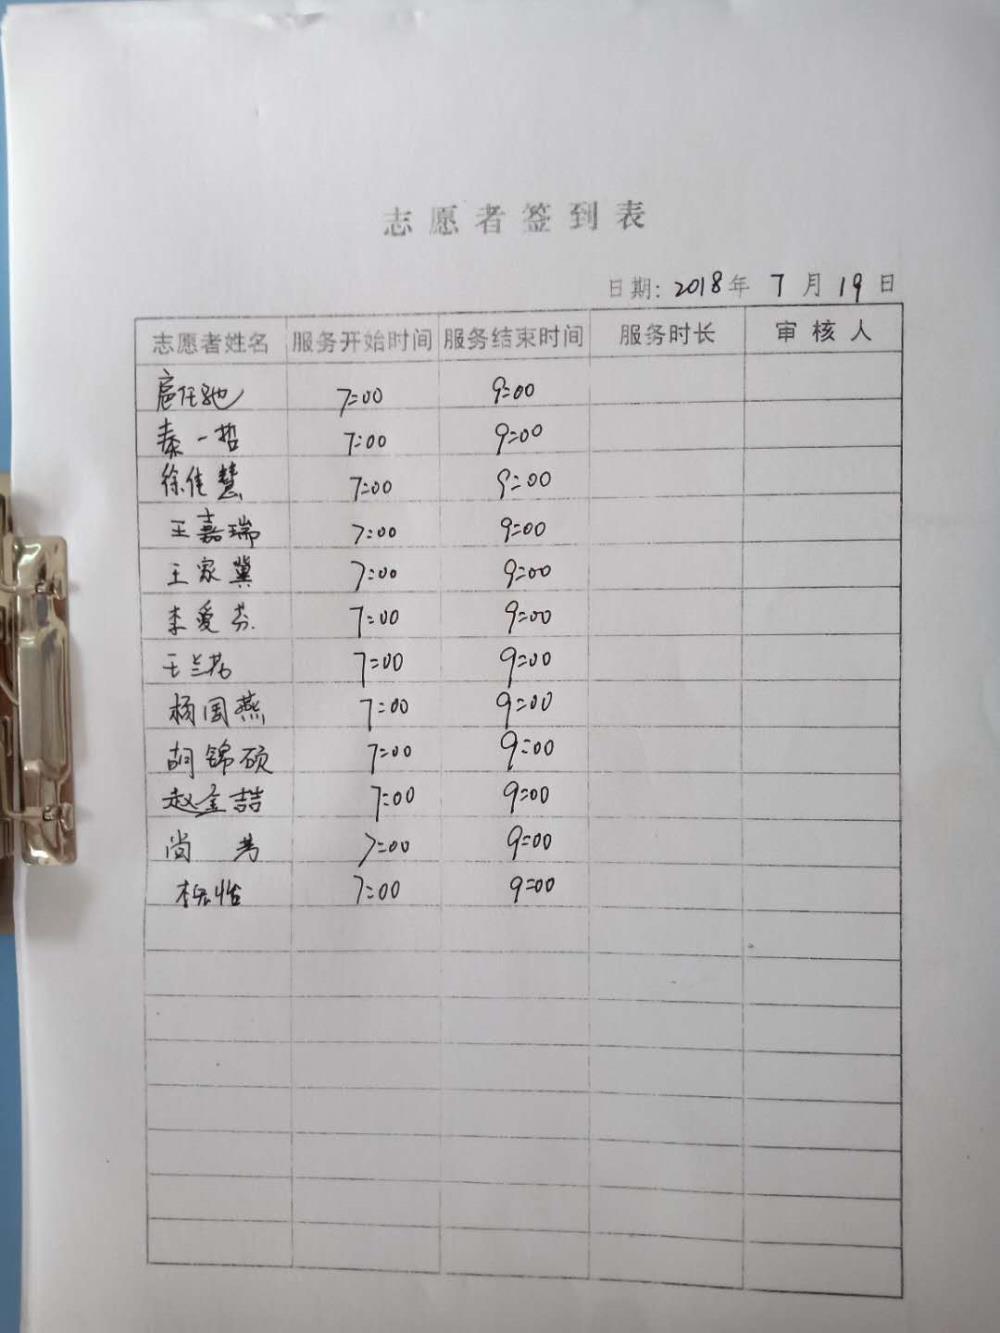 志愿者签到表
日期: 2018年 7月 19日
志愿者姓名 服务开始时间 服务结束时间 服务时长 审核人
7:00 9:00
秦一哲 7:00 9:00
徐佳慧 7:00 9:00
王嘉瑞 7:00 9:00
王家冀 7:00 9:00
李爱芬 7:00 9:00
王兰茗 7:00 9:00
杨国燕 7:00 9:00
胡锦硕 7:00 9:00
赵金喆 7:00 9:00
尚 7:00 9:00
7:00 9:00